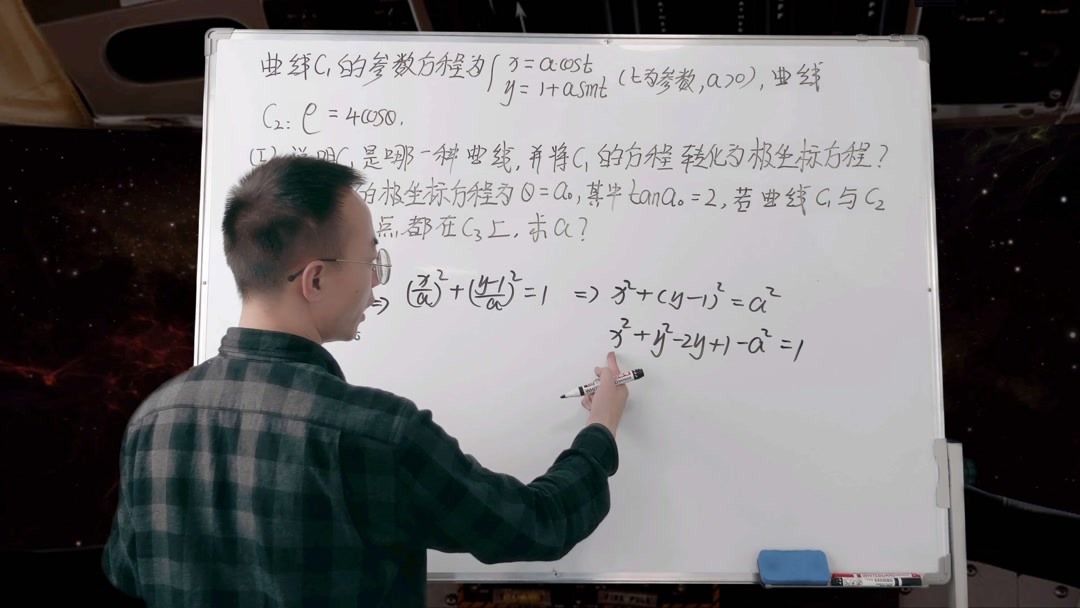 曲线C₁的参数方程为{x=acost
y=1+asint (t为参数,a>0),曲线
C₂: ρ=4cosθ.
(I) 说明C₁是哪一种曲线,并将C₁的方程转化为极坐标方程?
的极坐标方程为θ=a₀,其中tana₀=2,若曲线C₁与C₂
点都在C₃上,求a?
⇒ (x/a)²+(y-1/a)²=1 ⇒ x²+(y-1)²=a²
x²+y²-2y+1-a²=1